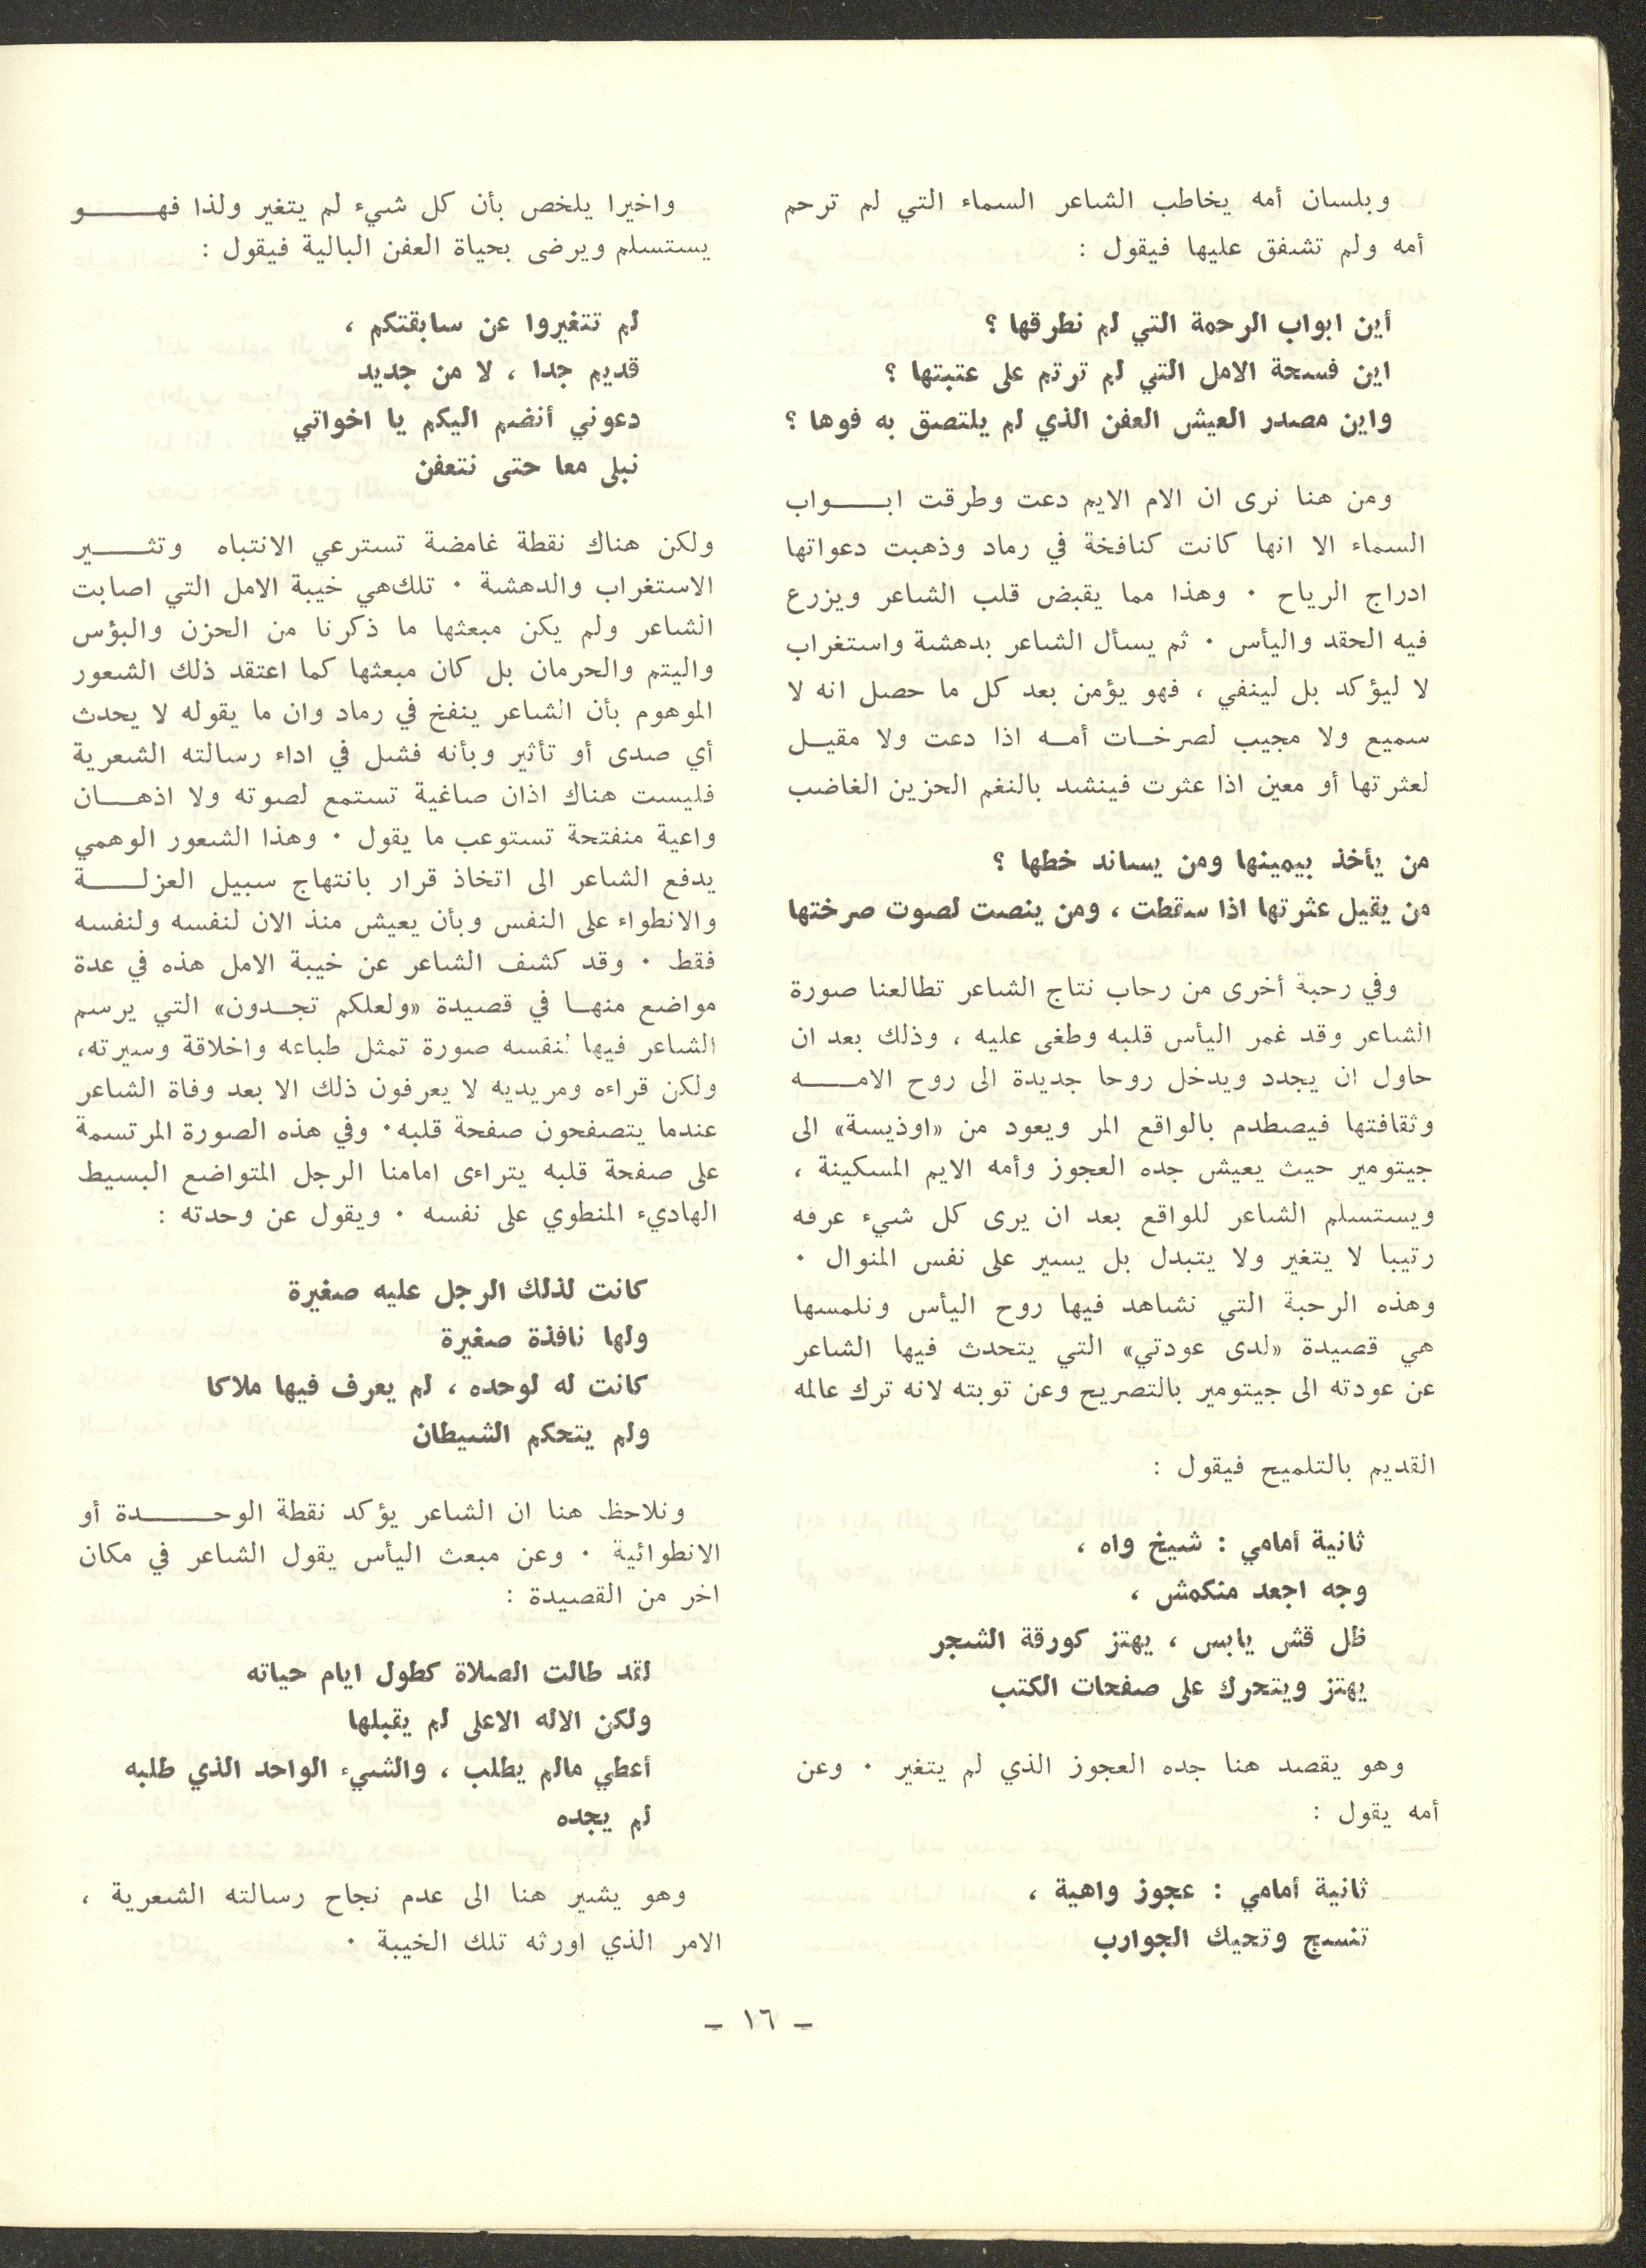 وبلسان أمه يخاطب الشاعر السماء التي لم ترحم
أمه ولم تشفق عليها فيقول :
أين ابواب الرحمة التي لم نطرقها ؟
اين فسحة الامل التي لم ترتم على عتبتها ؟
واين مصدر العيش العفن الذي لم يلتصق به فوها ؟
ومن هنا نرى ان الام الايم دعت وطرقت ابواب
السماء الا انها كانت كنافخة في رماد وذهبت دعواتها
ادراج الرياح . وهذا مما يقبض قلب الشاعر ويزرع
فيه الحقد واليأس . ثم يسأل الشاعر بدهشة واستغراب
لا ليؤكد بل لينفي ، فهو يؤمن بعد كل ما حصل انه لا
سميع ولا مجيب لصرخات أمه اذا دعت ولا مقيل
لعثرتها أو معين اذا عثرت فينشد بالنغم الحزين الغاضب
من يأخذ بيمينها ومن يساند خطها ؟
من يقيل عثرتها اذا سقطت ، ومن ينصت لصوت صرختها
وفي رحبة أخرى من رحاب نتاج الشاعر تطالعنا صورة
الشاعر وقد غمر اليأس قلبه وطغى عليه ، وذلك بعد ان
حاول ان يجدد ويدخل روحا جديدة الى روح الامه
وثقافتها فيصطدم بالواقع المر ويعود من «اوذيسة» الى
جيتومير حيث يعيش جده العجوز وأمه الايم المسكينة ،
ويستسلم الشاعر للواقع بعد ان يرى كل شيء عرفه
رتيبا لا يتغير ولا يتبدل بل يسير على نفس المنوال .
وهذه الرحبة التي نشاهد فيها روح اليأس ونلمسها
هي قصيدة «لدى عودتي» التي يتحدث فيها الشاعر
عن عودته الى جيتومير بالتصريح وعن توبته لانه ترك عالمه
القديم بالتلميح فيقول :
ثانية أمامي : شيخ واه ،
وجه اجعد منكمش ،
ظل قش يابس ، يهتز كورقة الشجر
يهتز ويتحرك على صفحات الكتب
وهو يقصد هنا جده العجوز الذي لم يتغير . وعن
أمه يقول :
ثانية أمامي : عجوز واهية ،
تنسج وتحيك الجوارب
واخيرا يلخص بأن كل شيء لم يتغير ولذا فهو
يستسلم ويرضى بحياة العفن البالية فيقول :
لم تتغيروا عن سابقتكم ،
قديم جدا ، لا من جديد
دعوني أنضم اليكم يا اخواتي
نبلى معا حتى نتعفن
ولكن هناك نقطة غامضة تسترعي الانتباه وتثير
الاستغراب والدهشة . تلك هي خيبة الامل التي اصابت
الشاعر ولم يكن مبعثها ما ذكرنا من الحزن والبؤس
واليتم والحرمان بل كان مبعثها كما اعتقد ذلك الشعور
الموهوم بأن الشاعر ينفخ في رماد وان ما يقوله لا يحدث
أي صدى أو تأثير وبأنه فشل في اداء رسالته الشعرية
فليست هناك اذان صاغية تستمع لصوته ولا اذهان
واعية منفتحة تستوعب ما يقول . وهذا الشعور الوهمي
يدفع الشاعر الى اتخاذ قرار بانتهاج سبيل العزلة
والانطواء على النفس وبأن يعيش منذ الان لنفسه ولنفسه
فقط . وقد كشف الشاعر عن خيبة الامل هذه في عدة
مواضع منها في قصيدة «ولعلكم تجدون» التي يرسم
الشاعر فيها لنفسه صورة تمثل طباعه واخلاقة وسيرته،
ولكن قراءه ومريديه لا يعرفون ذلك الا بعد وفاة الشاعر
عندما يتصفحون صفحة قلبه. وفي هذه الصورة المرتسمة
على صفحة قلبه يتراءى امامنا الرجل المتواضع البسيط
الهاديء المنطوي على نفسه . ويقول عن وحدته :
كانت لذلك الرجل عليه صغيرة
ولها نافذة صغيرة
كانت له لوحده ، لم يعرف فيها ملاكا
ولم يتحكم الشيطان
ونلاحظ هنا ان الشاعر يؤكد نقطة الوحدة أو
الانطوائية . وعن مبعث اليأس يقول الشاعر في مكان
اخر من القصيدة :
لقد طالت الصلاة كطول ايام حياته
ولكن الاله الاعلى لم يقبلها
أعطي مالم يطلب ، والشيء الواحد الذي طلبه
لم يجده
وهو يشير هنا الى عدم نجاح رسالته الشعرية ،
الامر الذي اورثه تلك الخيبة .
– ١٦ –